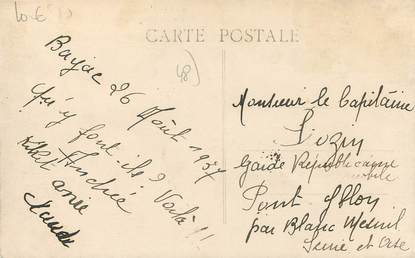 CARTE POSTALE
48
Bayac 26 Août 1937
Qu'y font-ils? Voilà!!
Andrée
Claude
Monsieur le Capitaine
Garde Républicaine
mobile
Pont Iblon
par Blanc Mesnil
Seine et Oise